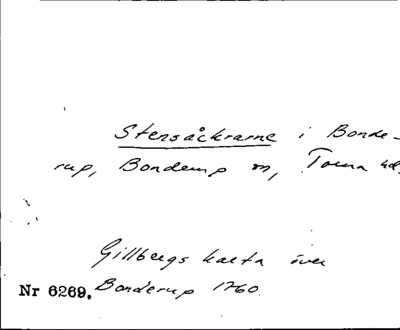 Stensåckrarne i Bonde-
rup, Bonderup sn, Torna hd.
Gillbergs karta över
Nr 6269. Bonderup 1760.